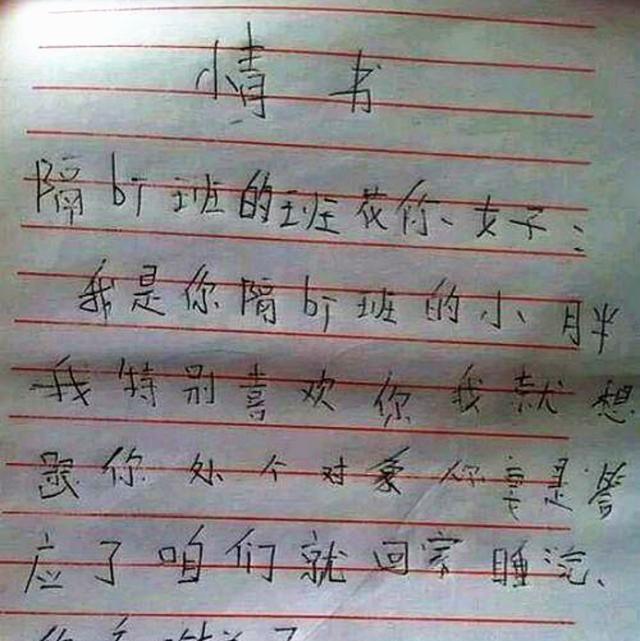 情书
隔bi班的班花你女子：
我是你隔bi班的小月半
我特别喜欢你我就想
跟你处个对象你要是答
应了咱们就回家睡